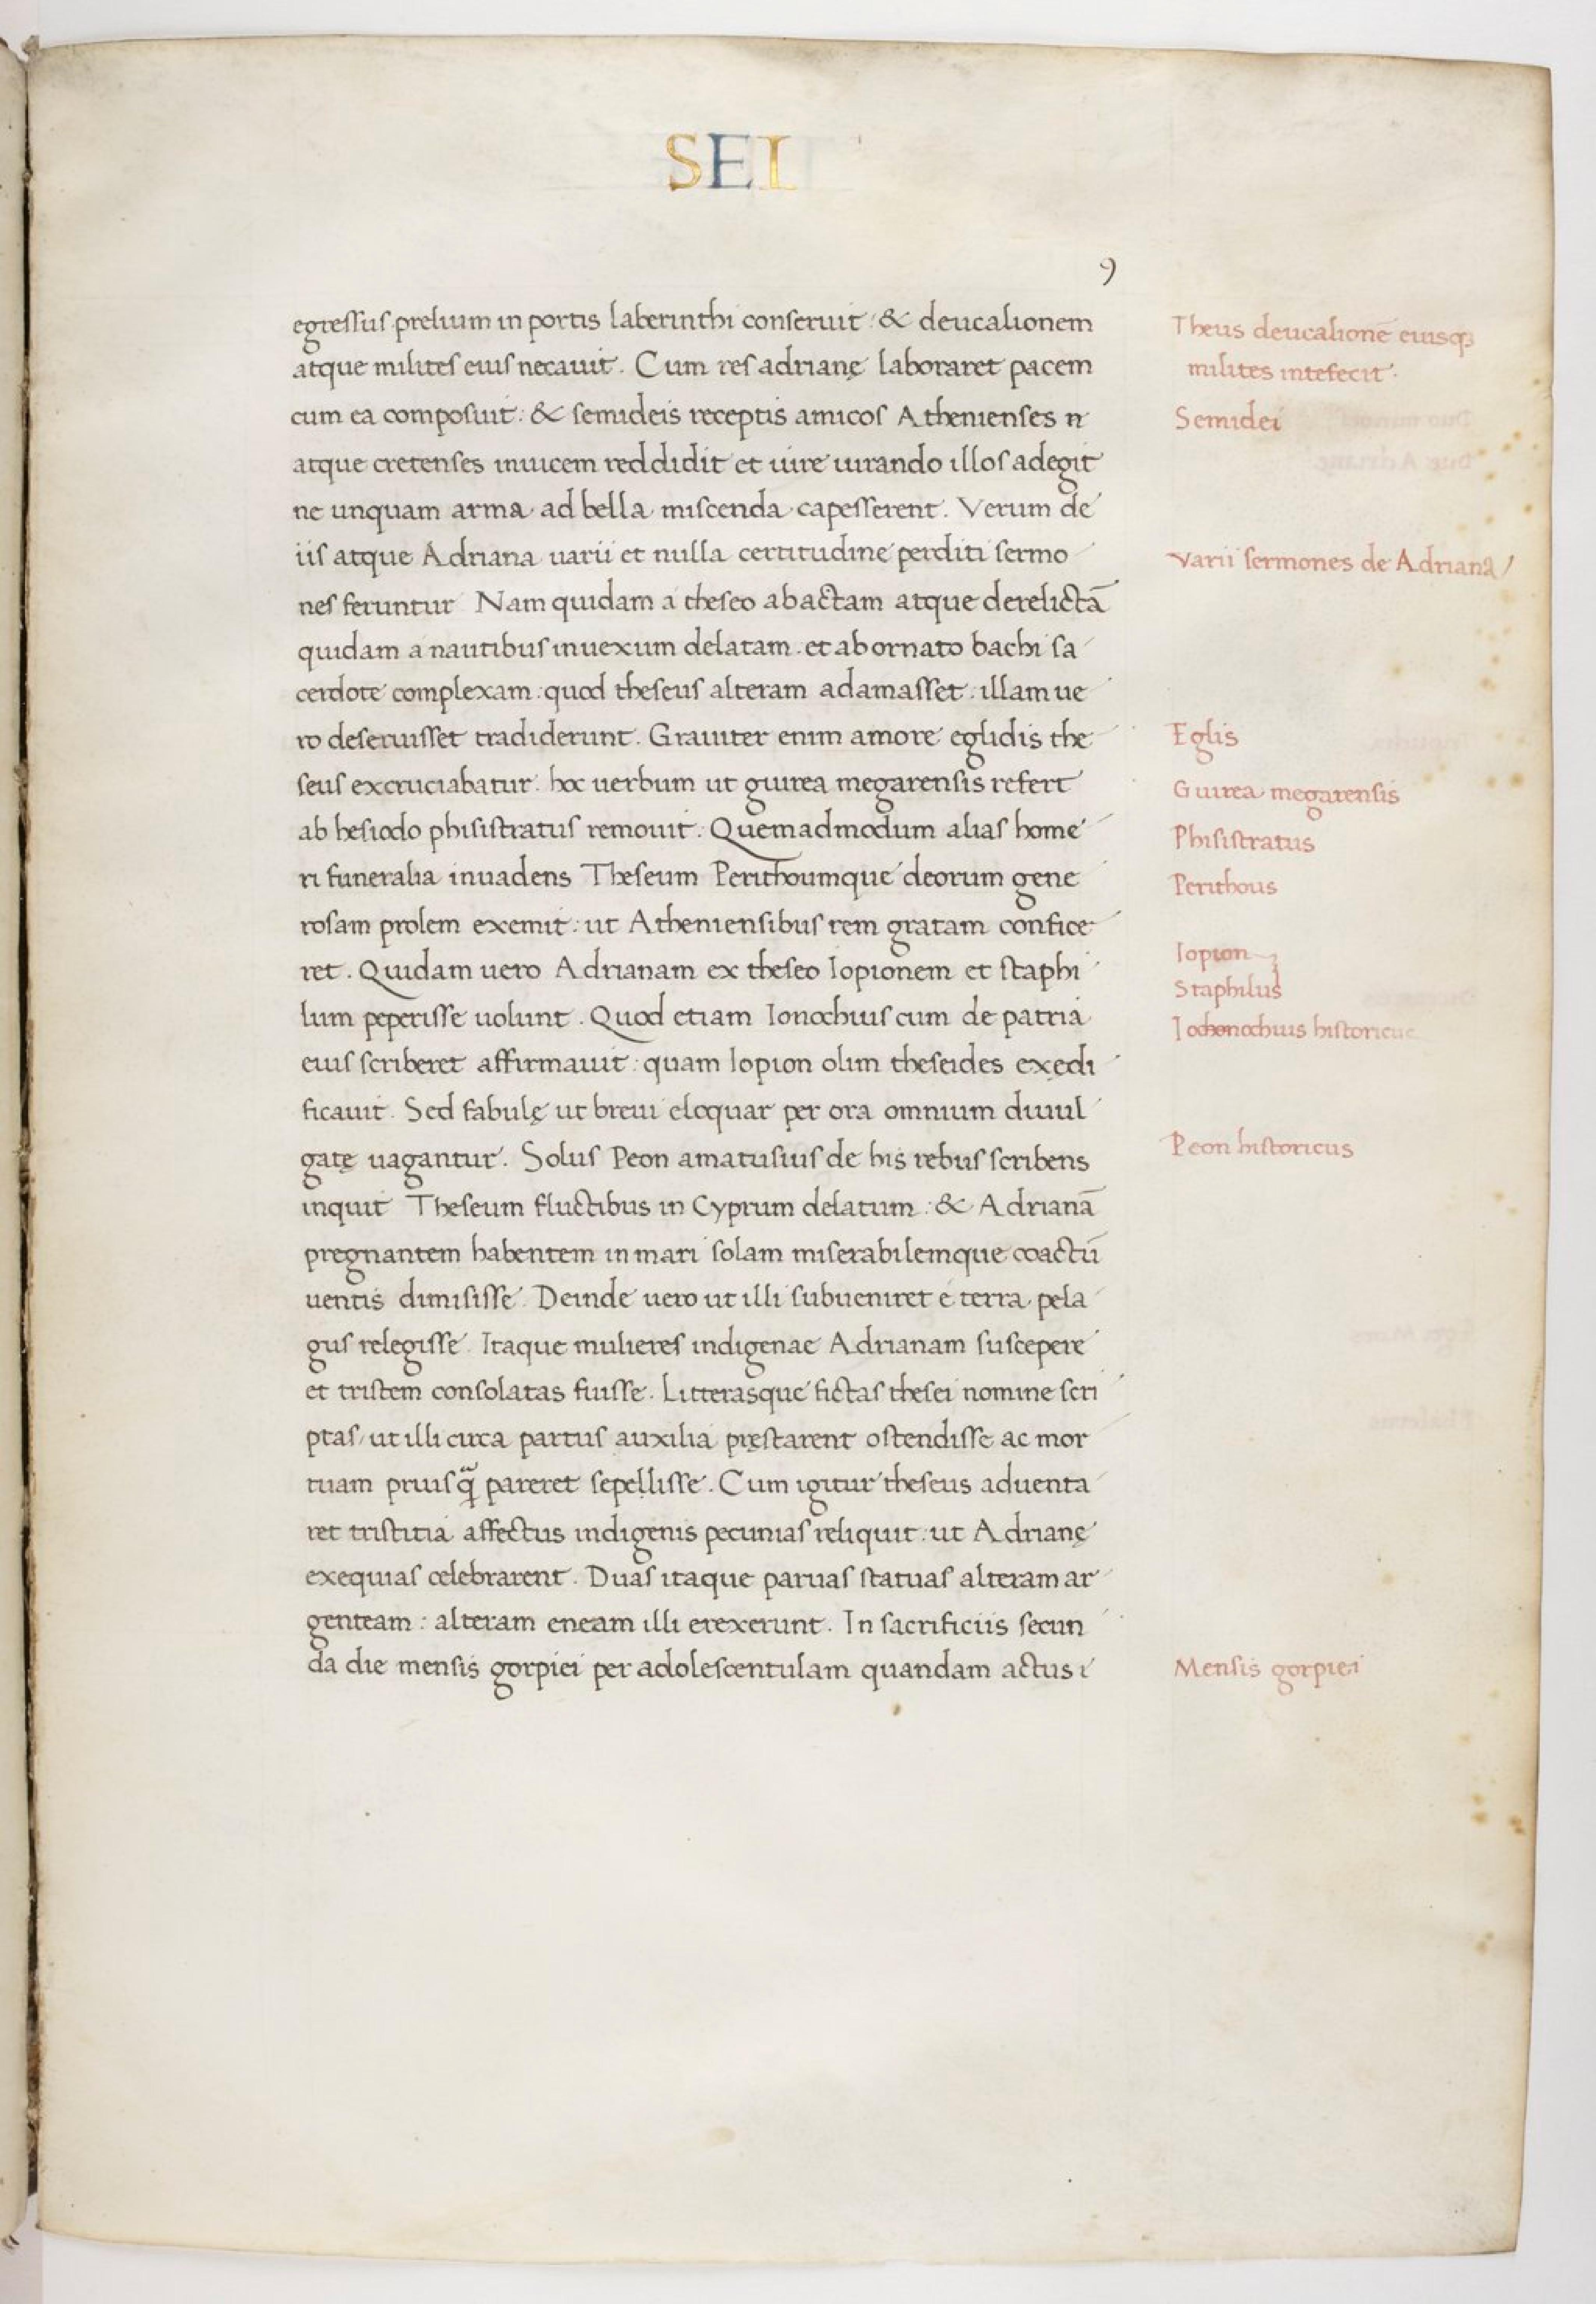 SEI
9
egressus prelium in portis laberinthi conseruit: & deucalionem
atque milites eius necauit. Cum res adrianę laboraret pacem
cum ea composuit: & semideis receptis amicos Athenienses n
atque cretenses inuicem reddidit et iure iurando illos adegit
ne unquam arma ad bella miscenda capesserent. Verum de
iis atque Adriana uarii et nulla certitudine perditi sermo
nes feruntur Nam quidam a theseo abactam atque derelictā
quidam a nautibus in uexum delatam. et ab ornato bachi sa
cerdote complexam: quod theseus alteram adamasset: illam ue
ro deseruisset tradiderunt. Grauiter enim amore eglidis the
seus excruciabatur. hoc uerbum ut guirea megarensis refert
ab hesiodo phisistratus remouit. Quemadmodum alias home
ri funeralia inuadens Theseum Perithoumque deorum gene
rosam prolem exemit: ut Atheniensibus rem gratam confice
ret. Quidam uero Adrianam ex theseo Iopionem et staphi
lum peperisse uolunt. Quod etiam Ionochius cum de patria
eius scriberet affirmauit: quam Iopion olim theseides exędi
ficauit. Sed fabulę ut breui eloquar per ora omnium diuul
gatę uagantur. Solus Peon amatusius de his rebus scribens
inquit Theseum fluctibus in Cyprum delatum: & Adrianā
pregnantem habentem in mari solam miserabilemque coactū
uentis dimisisse. Deinde uero ut illi subueniret e terra pela
gus relegisse. Itaque mulieres indigenae Adrianam suscepere
et tristem consolatas fuisse. Litterasque fictas thesei nomine scri
ptas/ ut illi circa partus auxilia pręstarent ostendisse ac mor
tuam priusq̃ pareret sepellisse. Cum igitur theseus aduenta
ret tristitia affectus indigenis pecunias reliquit: ut Adrianę
exequias celebrarent. Duas itaque paruas statuas alteram ar
genteam: alteram eneam illi erexerunt. In sacrificiis secun
da die mensis gorpiei per adolescentulam quandam actus i
Theus deucalionē eiusqꝫ
milites intefecit.
Semidei
Varii sermones de Adriana
Eglis
Guirea megarensis
Phisistratus
Perithous
Iopion
Staphilus
Iochonochius historicus
Peon historicus
Mensis gorpiei